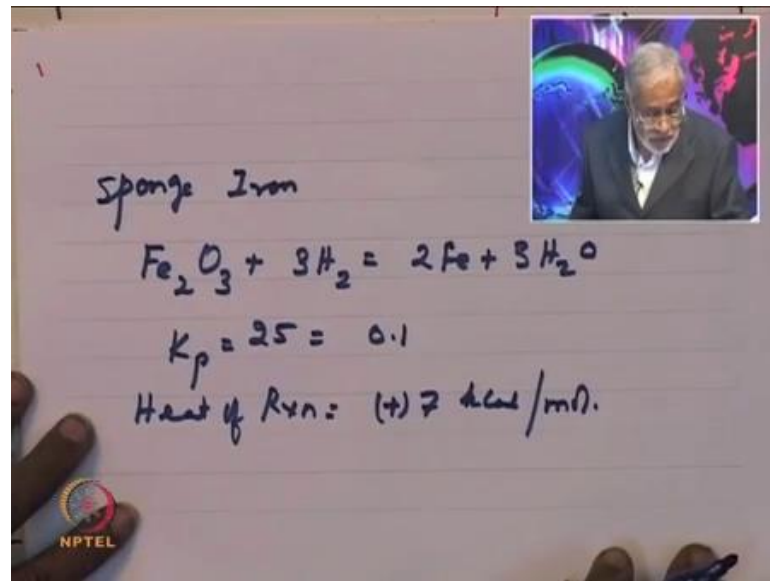 Sponge Iron
Fe₂O₃ + 3H₂ = 2Fe + 3H₂O
Kp = 25 = 0.1
Heat of Rxn = (+) 7 kcal/mol.
NPTEL